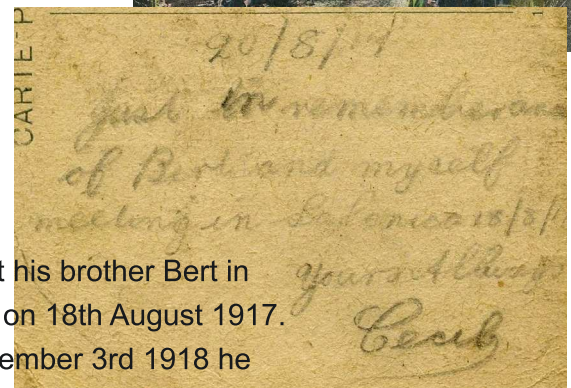 CARTE-P
20/8/17
Just in rememberanc
of Bert and myself
meeting in Salonica 18/8/1
Yours Always
Cecil
t his brother Bert in
on 18th August 1917.
ember 3rd 1918 he